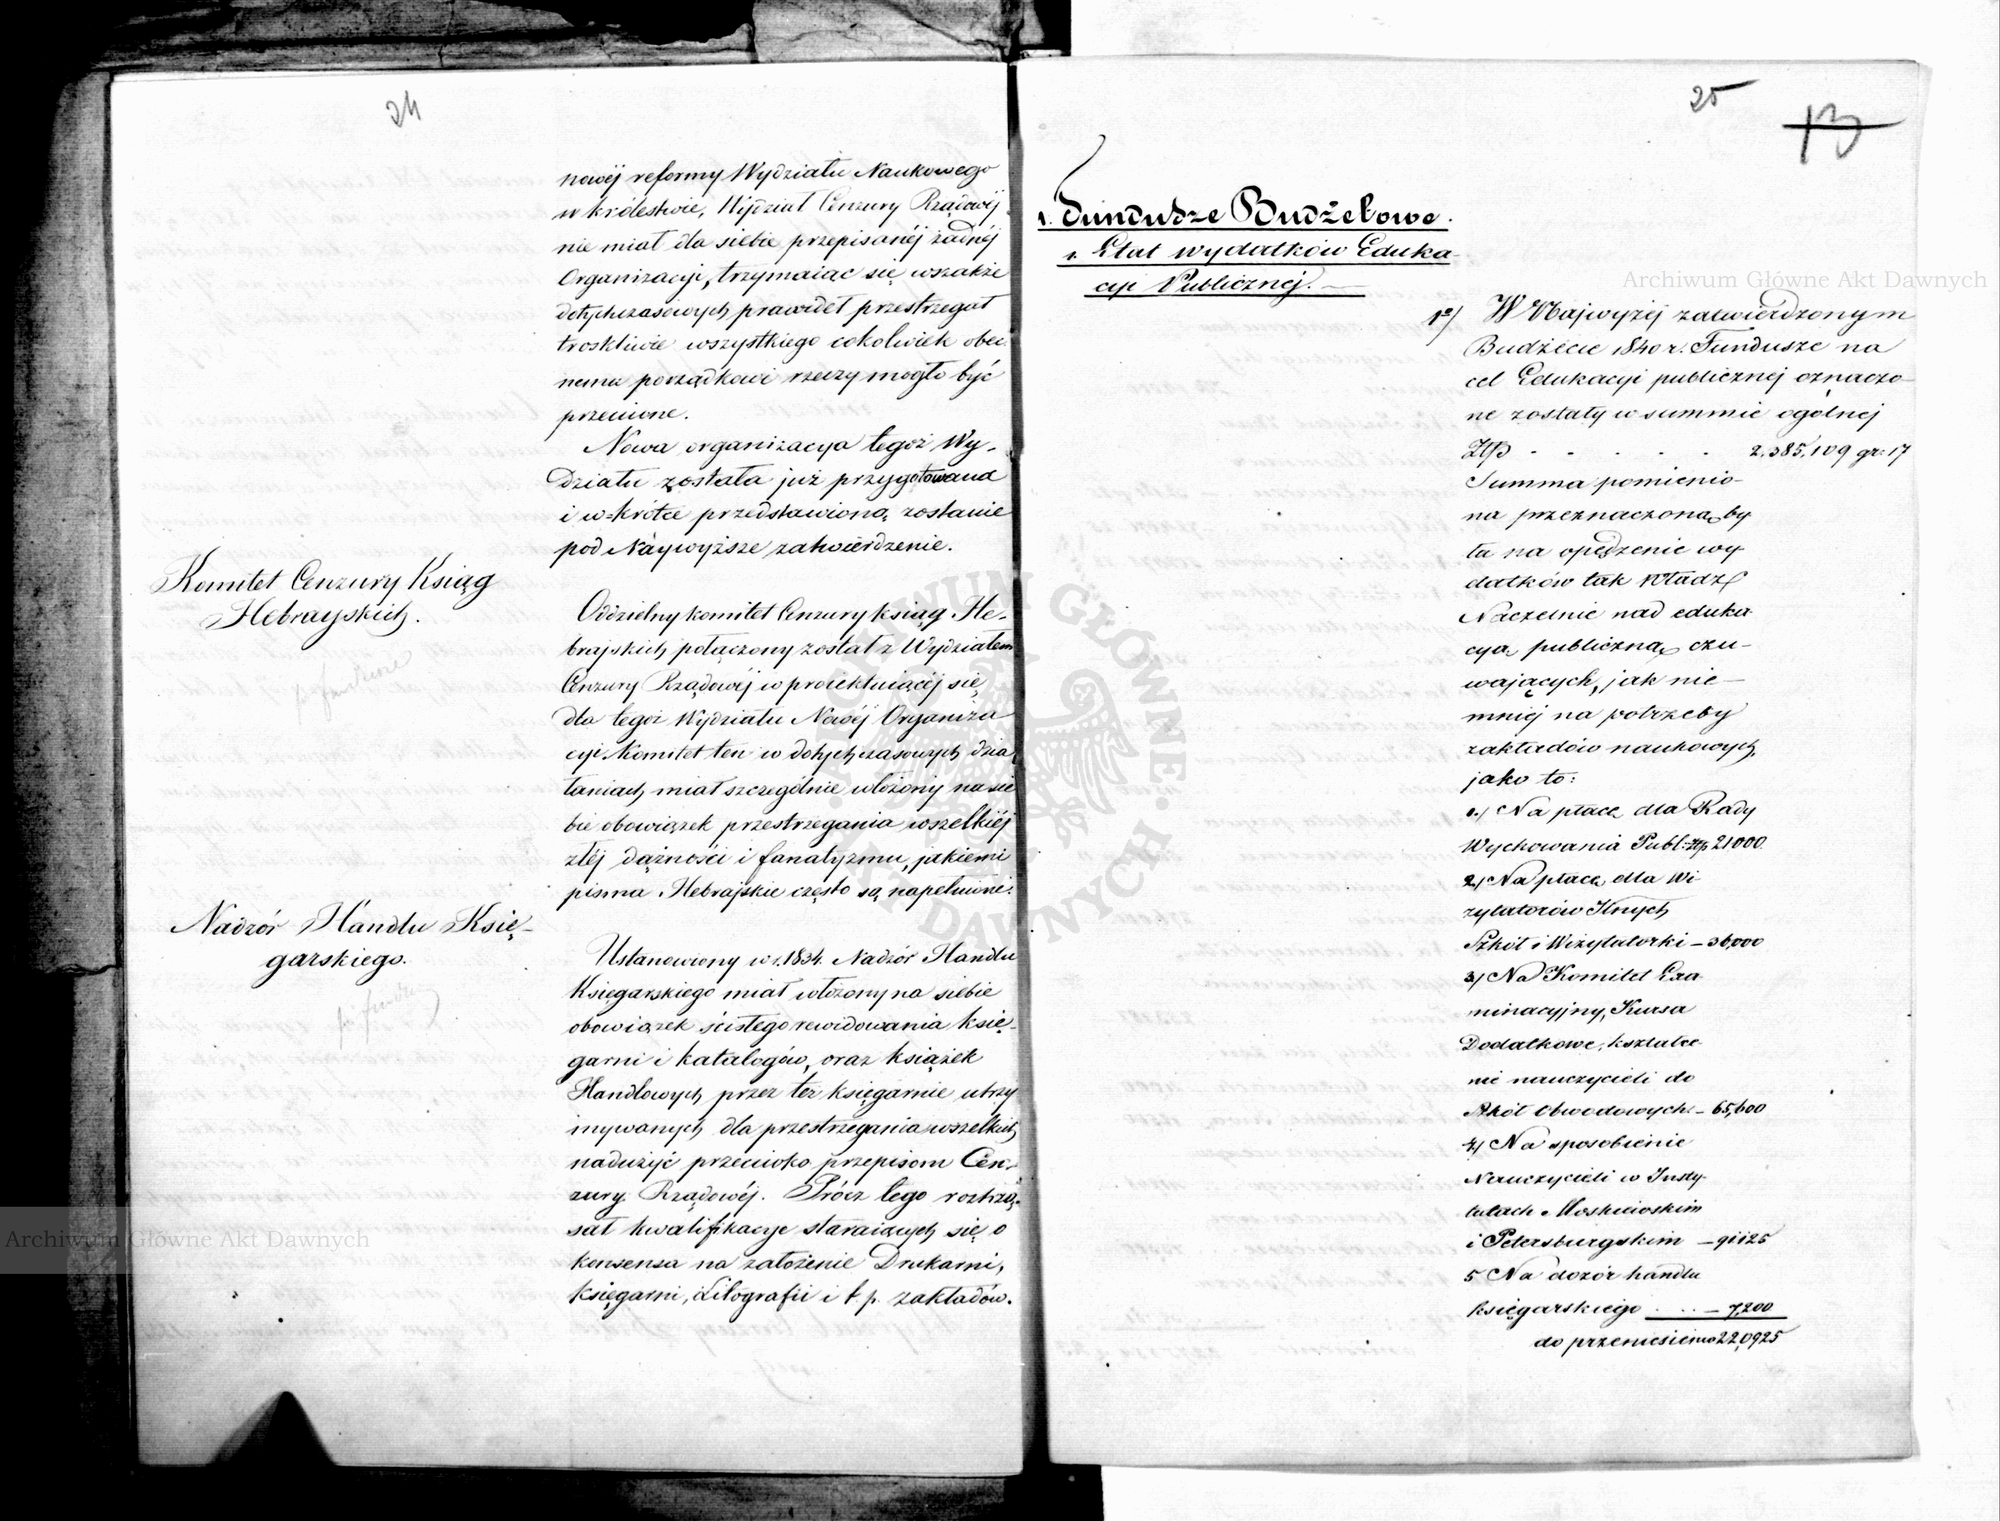 24
nowéj reformy Wydziału Naukowego
w królestwie, Wydział Cenzury Rządowéj
nie miał dla siebie przepisanéj żadnéj
Organizacyi, trzymaiąc się wszakże
dotychczasowych prawideł przestrzegał
troskliwie wszystkiego cokolwiek obec
nemu porządkowi rzeczy mogło być
przeciwne.
Nowa organizacya tegoż Wy-
działu została już przygotowaną
i w=krótce przedstawioną zostanie
pod Náywyższe zatwierdzenie.
Komitet Cenzury Ksiąg
Hebrayskich.
Oddzielny komitet Cenzury ksiąg He-
brajskich połączony został z Wydziałem
Cenzury Rządowéj w proiektuiącéj się
dla tegoż Wydziału Nowéj Organiza
cyi Komitet ten w dotychczasowych dzia
łaniach miał szczególnie włożony na sie
bie obowiązek przestrzegania wszelkiéj
złéj dążności i fanatyzmu, jakiemi
pisma Hebrajskie często są napełnione.
Nadzór Handlu Księ-
garskiego.
Ustanowiony w r. 1834. Nadzór Handlu
Księgarskiego miał włożony na siebie
obowiązek ścisłego rewidowania księ-
garni i katalogów, oraz książek
Handlowych przez też księgarnie utrzy
mywanych dla przestrzegania wszelkich
nadużyć przeciwko przepisom Cen-
zury Rządowéj. Prócz tego roztrzą-
sał kwalifikacye staraiących się o
konsensa na założenie Drukarni,
księgarni, Litografii i t. p. zakładów.
25
13
1. Fundusze Budżetowe.
1. Etat wydatków Eduka-
cyi Publicznej.
1º/ W Najwyżéj zatwierdzonym
Budżecie 1840 r. Fundusze na
cel Edukacyi publicznej oznaczo-
ne zostały w summie ogólnej
Złp - - - - - 2,385,109 gr: 17
Summa pomienio-
na przeznaczoną by
ła na opędzenie wy
datków tak Władz
Naczelnie nad eduka
cyą publiczną czu-
wających, jak nie-
mniéj na potrzeby
zakładów naukowych
jako to:
1./ Na płacę dla Rady
Wychowania Publ: złp. 21000.
2/ Na płacę dla Wi
zytatorów Jlnych
Szkół i Wizytatorki – 36,000
3/ Na Komitet Exa
minacyjny, Kursa
Dodatkowe, kształce-
nie nauczycieli do
szkół Obwodowych. – 65,600
4/ Na sposobienie
Nauczycieli w Insty-
tutach Moskiewskim
i Petersburgskim – 91125
5 Na dozór handlu
księgarskiego . . . – 7,200
do przeniesienia 220925
Archiwum Główne Akt Dawnych
Archiwum Główne Akt Dawnych
ARCHIWUM GŁÓWNE AKT DAWNYCH